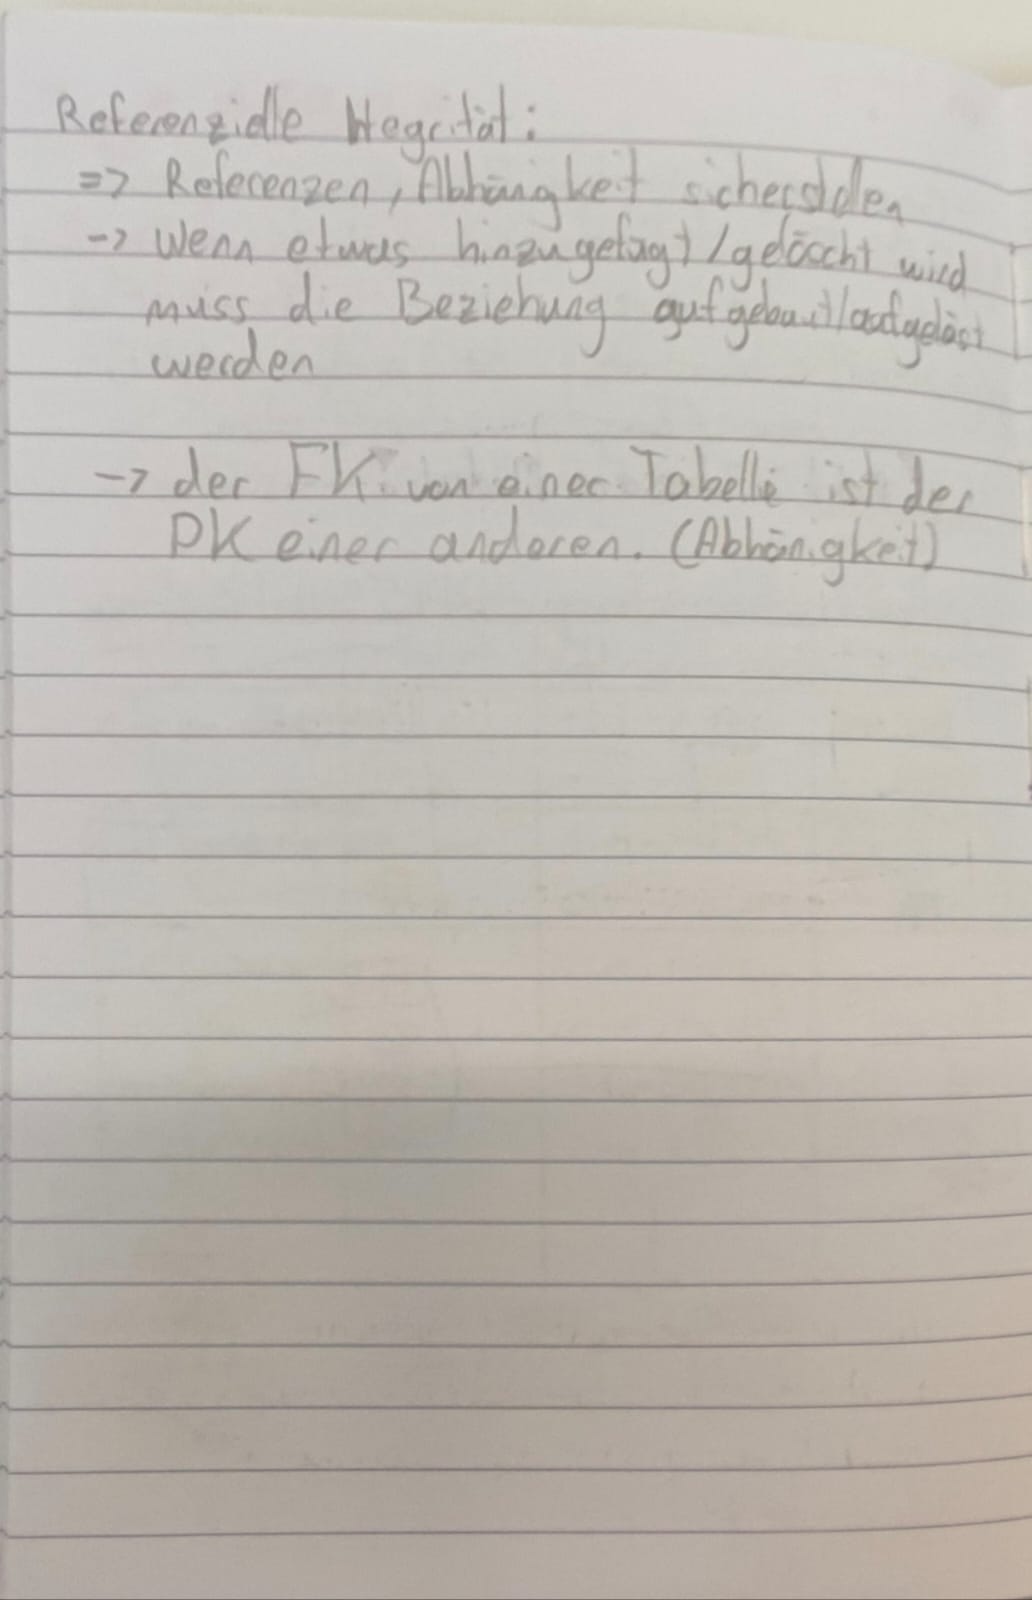 Referenzielle Integrität:
=> Referenzen, Abhängigkeit sicherstellen
-> Wenn etwas hinzugefügt/gelöscht wird
muss die Beziehung aufgebaut/aufgelöst
werden
-> der FK von einer Tabelle ist der
PK einer anderen. (Abhängigkeit)